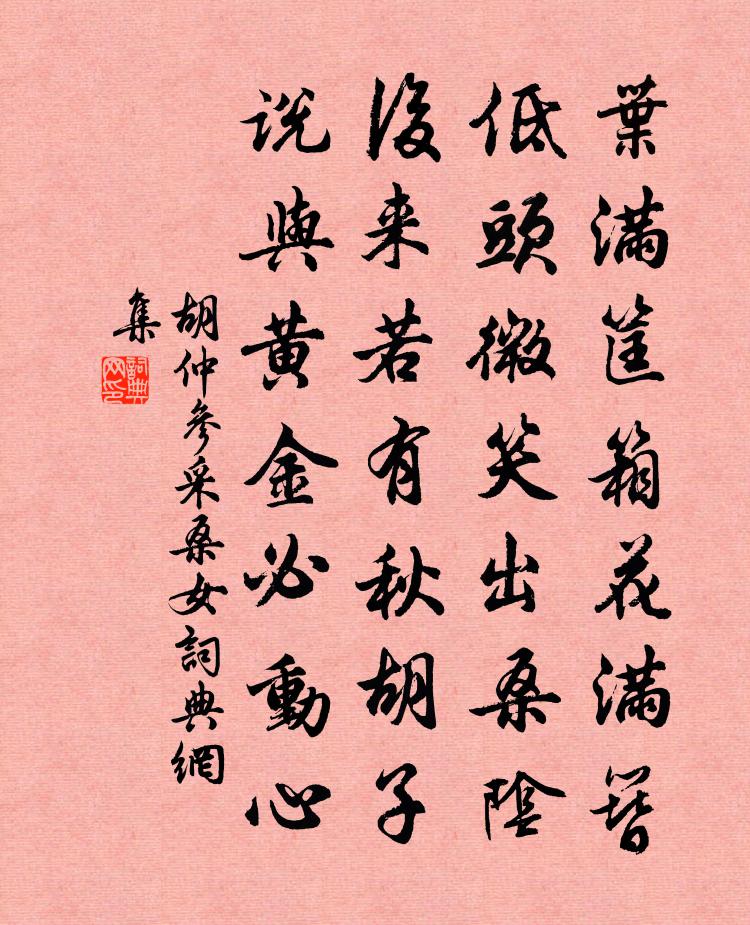 葉滿筐箱花滿簪
低頭微笑出桑陰
後来若有秋胡子
说與黄金必動心
胡仲參采桑女詞典網
集
詞典
网印